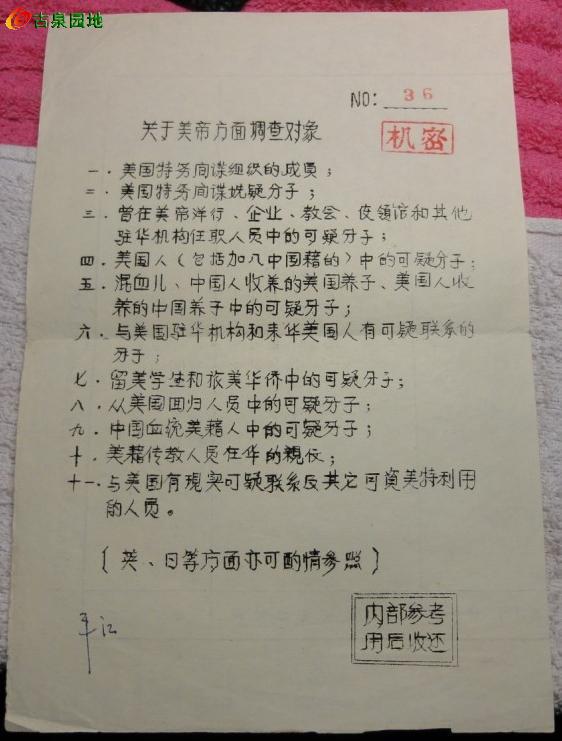 古泉园地
NO: 36
机密
关于美帝方面调查对象
一．美国特务间谍组织的成员；
二．美国特务间谍嫌疑分子；
三．曾在美帝洋行、企业、教会、使领馆和其他
驻华机构任职人员中的可疑分子；
四．美国人（包括加入中国藉的）中的可疑分子；
五．混血儿、中国人收养的美国养子、美国人收
养的中国养子中的可疑分子；
六．与美国驻华机构和来华美国人有可疑联系的
分子；
七．留美学生和旅美华侨中的可疑分子；
八．从美国回归人员中的可疑分子；
九．中国血统美藉人中的可疑分子；
十．美藉传教人员在华的親友；
十一．与美国有现实可疑联系及其它可资美特利用
的人员。
〔英、日等方面亦可酌情参照〕
内部参考
用后收还